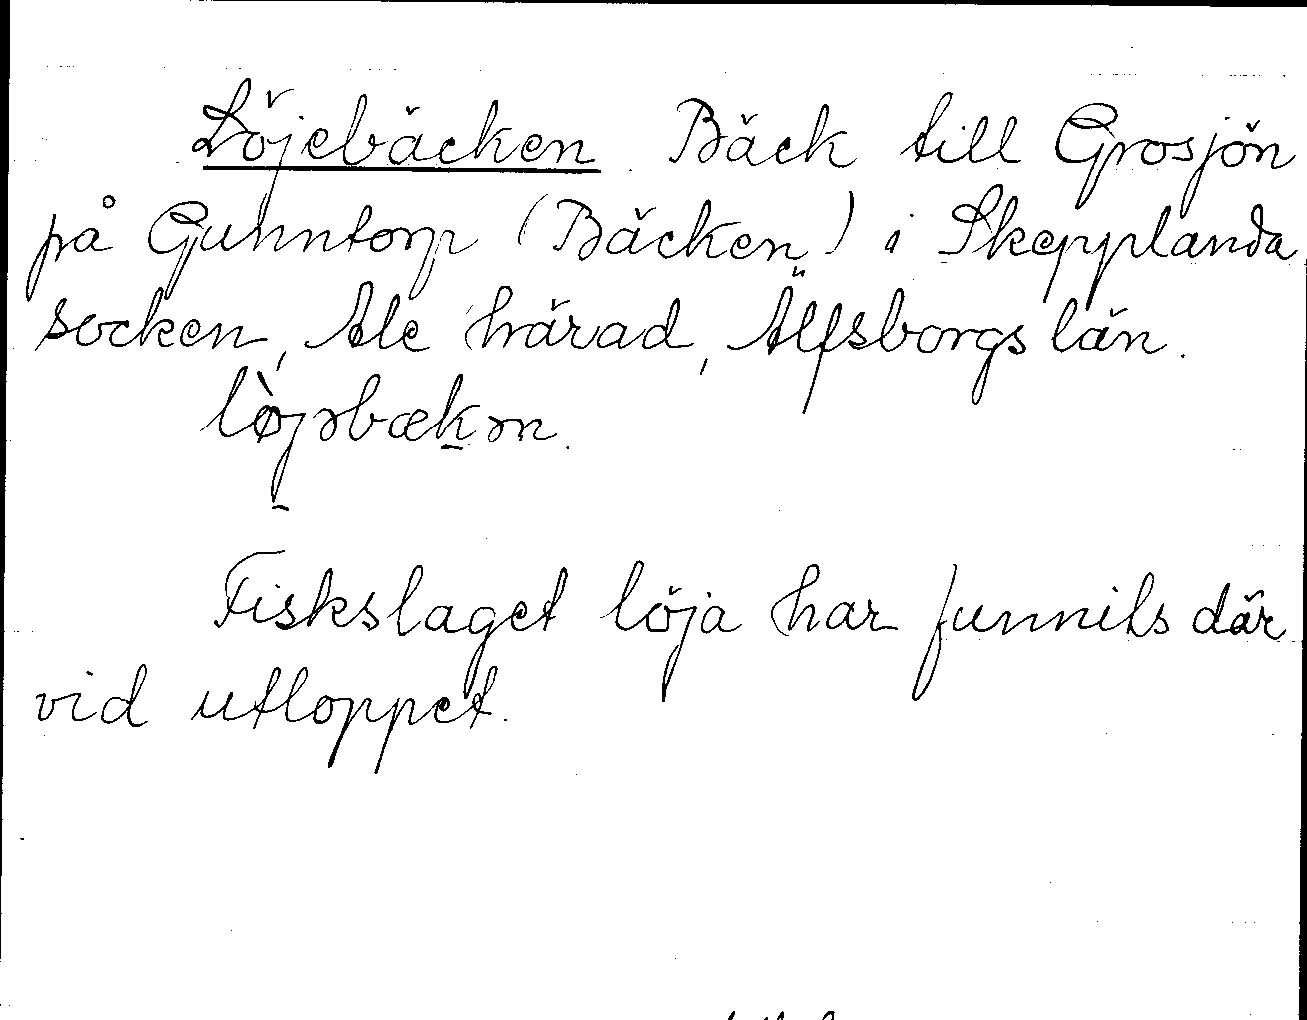 Löjebäcken Bäck till Grosjön
på Gunntorp (Bäcken) i Skepplanda
socken, Ale härad, Älfsborgs län.
lø̀jəbækən.
Fiskslaget löja har funnits där
vid utloppet.